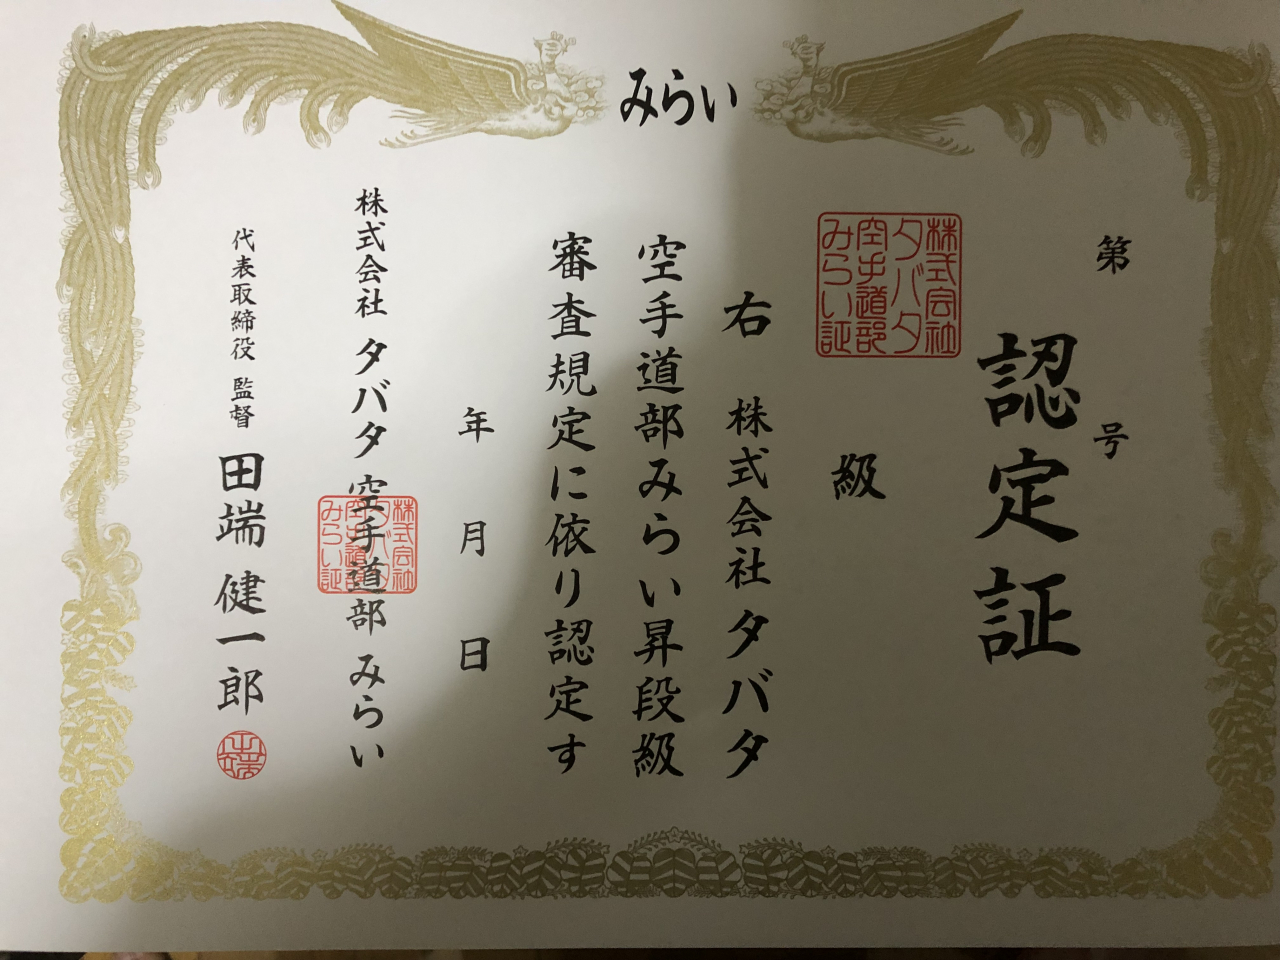 みらい
第 号
認定証
株式会社
タバタ
空手道部
みらい証
級
右 株式会社 タバタ
空手道部みらい昇段級
審査規定に依り認定す
年 月 日
株式会社 タバタ 空手道部 みらい
株式会社
タバタ
空手道部
みらい証
代表取締役 監督 田端 健一郎
田端